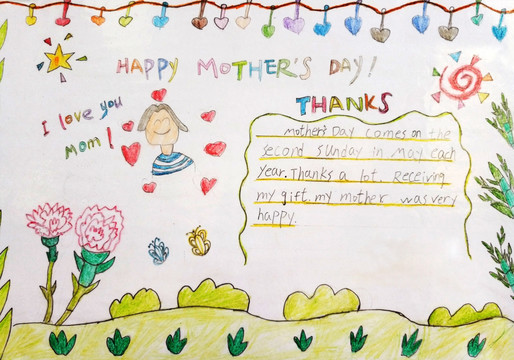 HAPPY MOTHER'S DAY!
I love you
Mom!
THANKS
Mother's Day comes on the
second Sunday in May each
year. Thanks a lot. Receiving
my gift, my mother was very
happy.